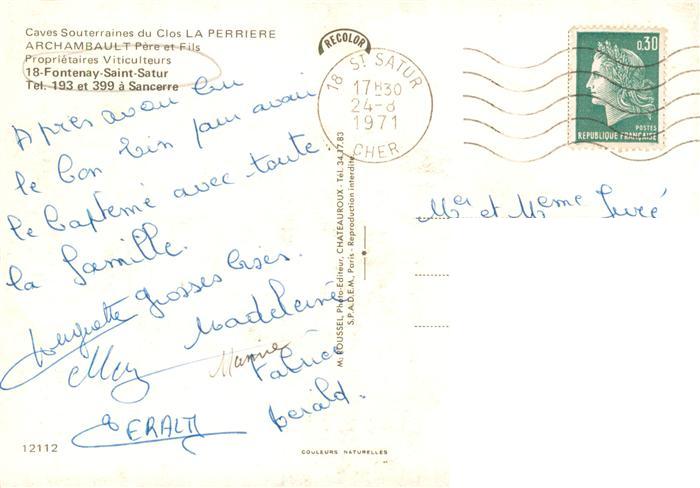 Caves Souterraines du Clos LA PERRIERE
ARCHAMBAULT Père et Fils
Propriétaires Viticulteurs
18-Fontenay-Saint-Satur
Tel. 193 et 399 à Sancerre
Après avoir bu
le bon vin pour avoir
le baptemé avec toute
la famille.
grosses bises.
Huguette Madeleine
Marine
Fabrice
GERALD Gérald.
12112
COULEURS NATURELLES
M. ROUSSEL, Photo-Editeur, CHATEAUROUX - Tél. 34.17.83
S.P.A.D.E.M., Paris - Reproduction interdite
RECOLOR
18 ST SATUR
17H30
24-8
1971
CHER
0,30
POSTES
REPUBLIQUE FRANÇAISE
Mer et Meme Juré